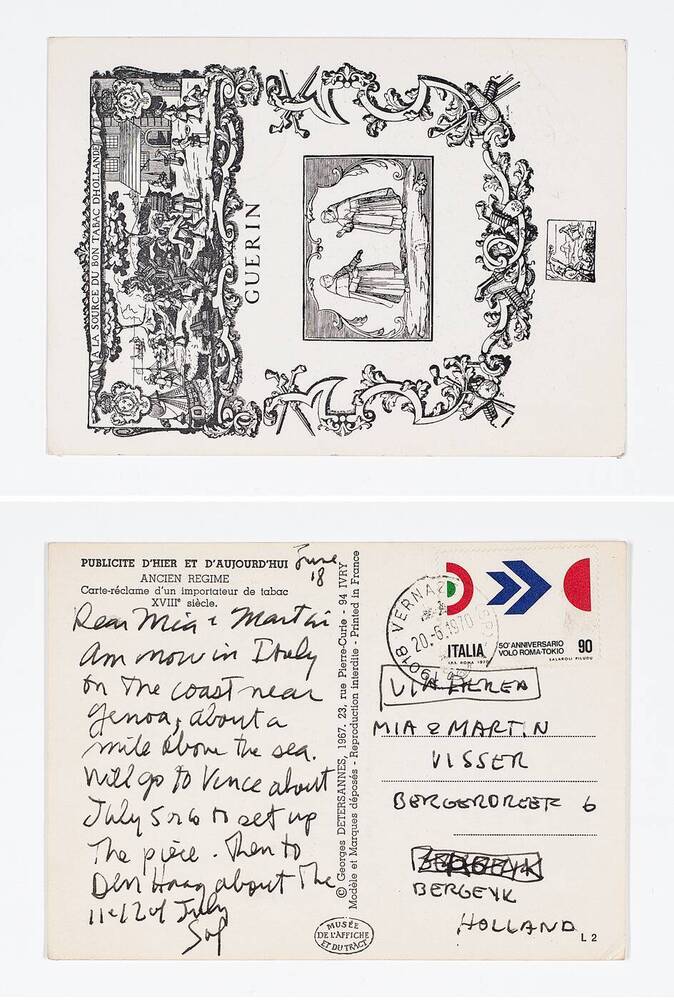 A LA SOURCE DU BON TABAC DHOLLANDE
GUERIN
PUBLICITE D'HIER ET D'AUJOURD'HUI
ANCIEN REGIME
Carte-réclame d'un importateur de tabac
XVIIIe siècle.
June
18
Dear Mia & Martin
Am now in Italy
on the coast near
Genoa, about a
mile above the sea.
Will go to Vence about
July 5 or 6 to set up
the piece. Then to
Den Haag about the
11 or 12 of July
Sol
© Georges DETERSANNES, 1967. 23, rue Pierre-Curie - 94 IVRY
Modèle et Marques déposés - Reproduction interdite - Printed in France
MUSÉE
DE L'AFFICHE
ET DU TRACT
19018 VERNAZ
20.6.1970
ITALIA
50° ANNIVERSARIO
VOLO ROMA-TOKIO
90
I.P.S. ROMA 1970
VIA AEREA
MIA & MARTIN
VISSER
BERGERDREEF 6
BERGEYK
HOLLAND
L 2